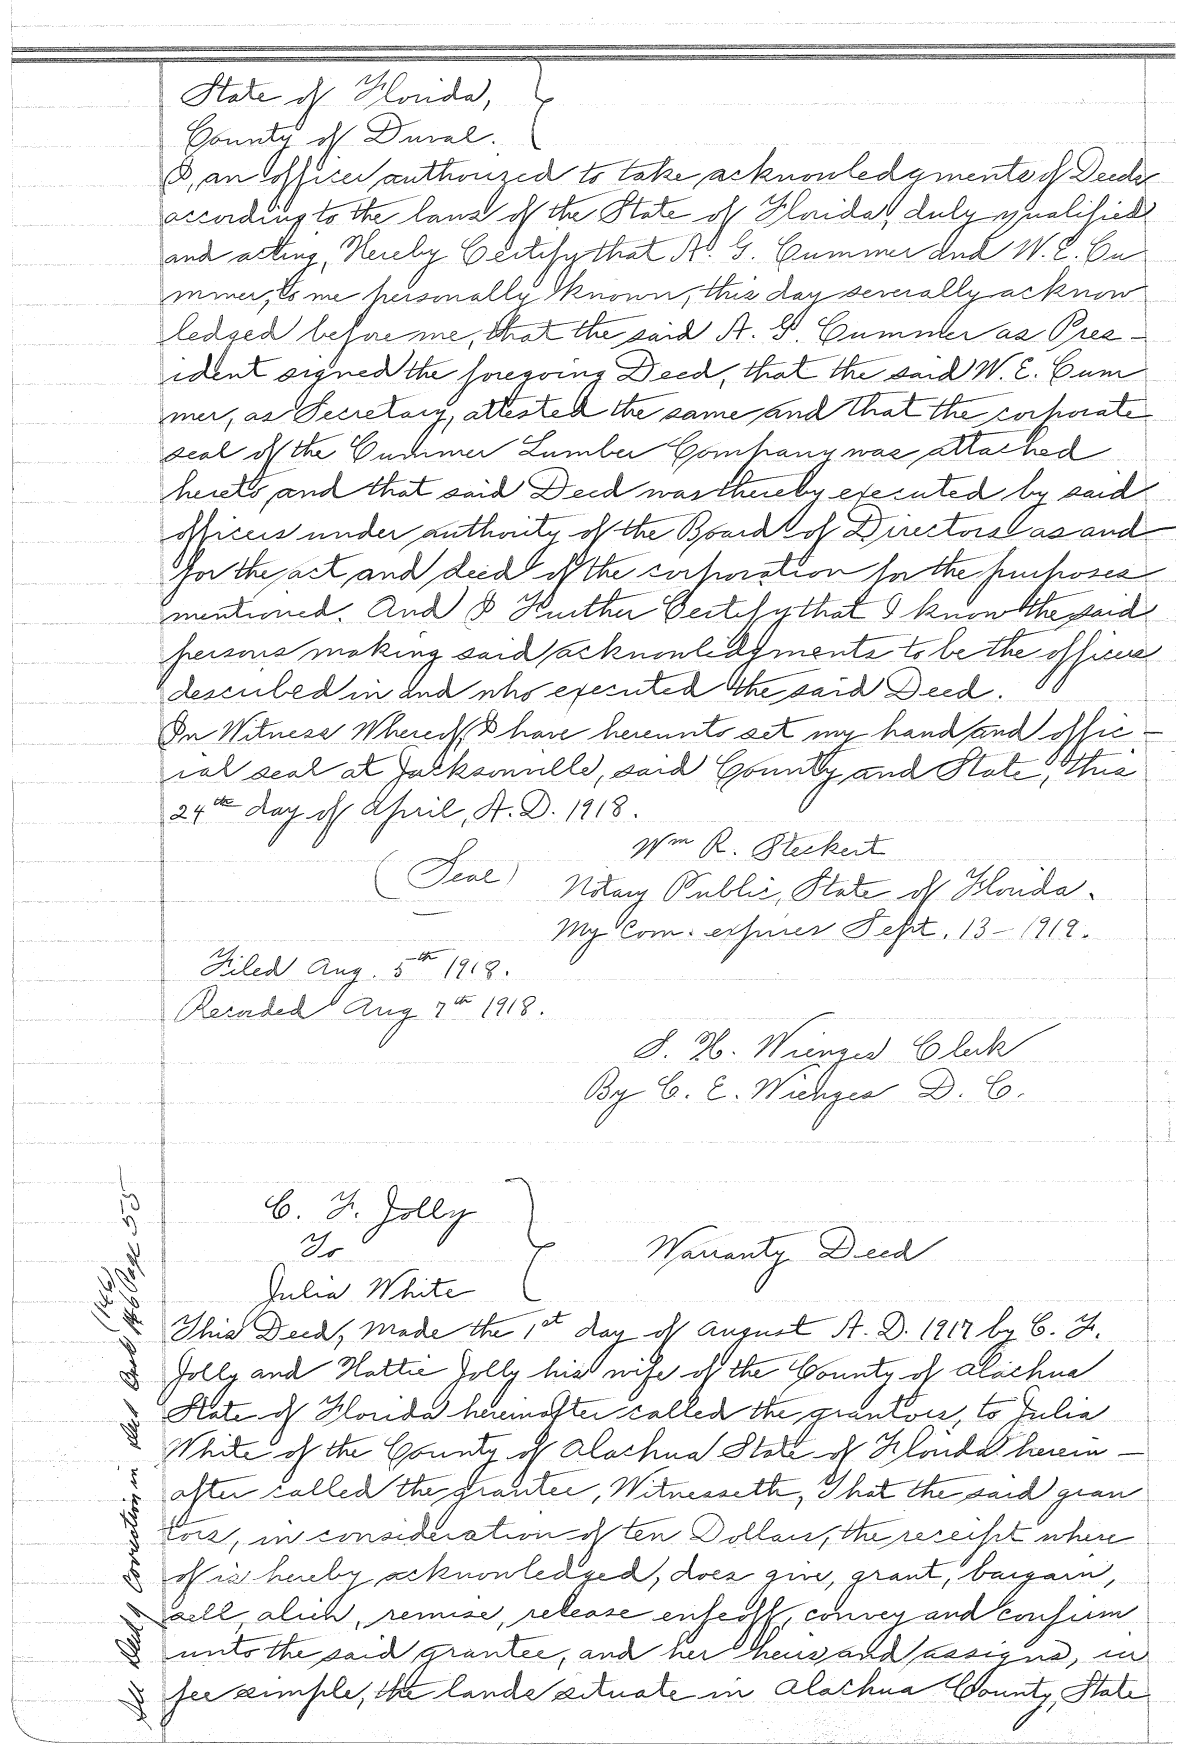 State of Florida,
County of Duval.
I, an officer authorized to take acknowledgments of Deeds
according to the laws of the State of Florida, duly qualified
and acting, Hereby Certify that A. G. Cummer and W. E. Cu
mmer, to me personally known, this day severally acknow
ledged before me, that the said A. G. Cummer as Pres-
ident signed the foregoing Deed, that the said W. E. Cum
mer, as Secretary, attested the same and that the corporate
seal of the Cummer Lumber Company was attached
hereto and that said Deed was thereby executed by said
officers under authority of the Board of Directors as and
for the act and deed of the corporation for the purposes
mentioned. And I Further Certify that I know the said
persons making said acknowledgments to be the officers
described in and who executed the said Deed.
In Witness Whereof, I have hereunto set my hand and offic-
ial seal at Jacksonville, said County and State, this
24th day of April, A. D. 1918.
Wm R. Steckert
(Seal) Notary Public, State of Florida.
My Com. expires Sept. 13-1919.
Filed Aug. 5th 1918.
Recorded Aug 7th 1918.
S. H. Wienges Clerk
By C. E. Wienges D. C.
C. F. Jolly
To
Warranty Deed
Julia White
This Deed, Made the 1st day of August A. D. 1917 by C. F.
Jolly and Hattie Jolly his wife of the County of Alachua
State of Florida hereinafter called the grantors, to Julia
White of the County of Alachua State of Florida herein-
after called the grantee, Witnesseth, That the said gran
tors, in consideration of ten Dollars, the receipt where
of is hereby acknowledged, does give, grant, bargain,
sell, alien, remise, release enfeoff, convey and confirm
unto the said grantee, and her heirs and assigns, in
fee simple, the lands situate in Alachua County, State
(146)
See Deed of Correction in Deed Book 146 Page 55